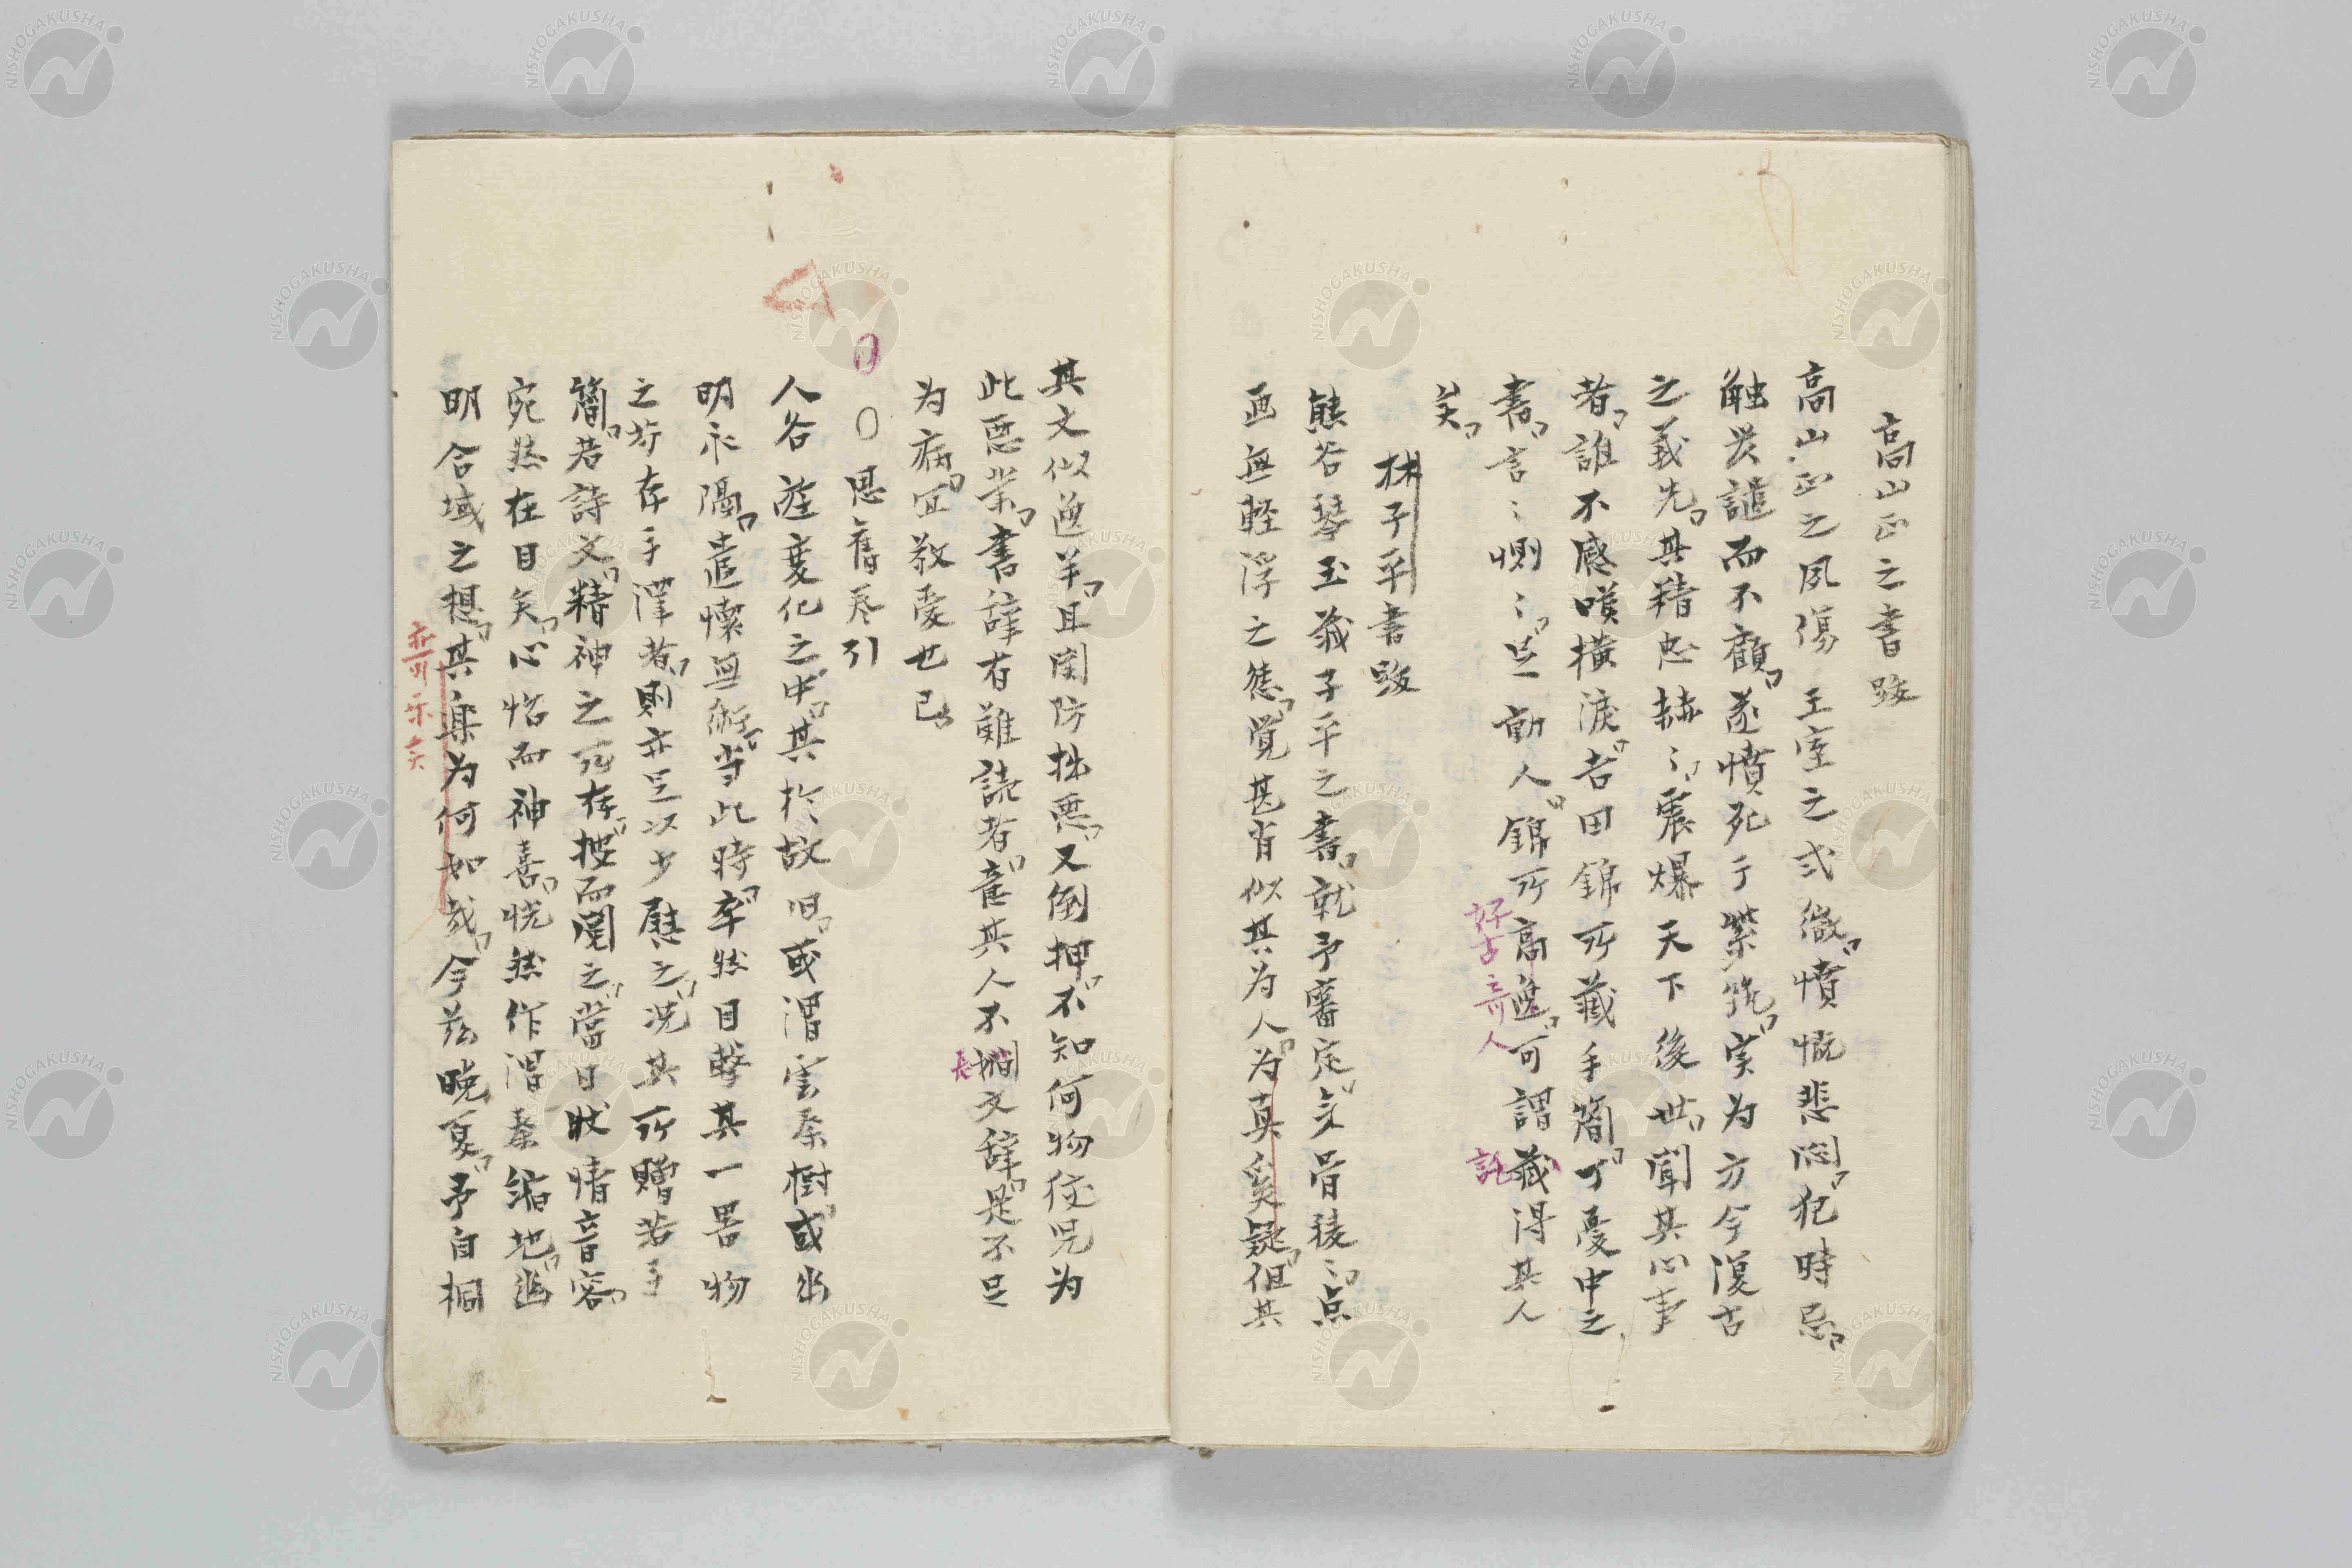 高山正之書跋
高山正之夙傷 王室之式微憤慨悲悶犯時忌
触災譴而不顧遂憤死于紫筑実为方今復古
之義先其精忠赫〻震爆天下後世聞其心事
者誰不感嘆横涙吉田錦所藏手簡丁憂中之
書言〻惻〻足動人錦所高逸可謂藏得其人
好古奇人
託
矣
林子平書跋
熊谷琴玉藏子平之書就予審定之骨稜〻点
画無軽浮之態覚甚肖似其为人为真奚疑但其
其文似逸羊且関防拙悪又倒押不知何物狡児为
此悪業書辞有難読者雖其人不嫺文辞是不足
長
为病宜敬愛也已
〇思舊巻引
人谷遊変化之中其於故旧或渭雲秦樹或幽
明永隔遣懐無術当此時卒然目擊其一罢物
之苟存手澤者則亦足以少慰之况其所贈若手
簡若詩文精神之所存披而閲之當日状情音容
宛然在目矣心怡而神喜恍然作渭秦縮地幽
明合域之想其樂为何如哉今茲晩夏予自桐
亦可樂矣
NISHOGAKUSHA